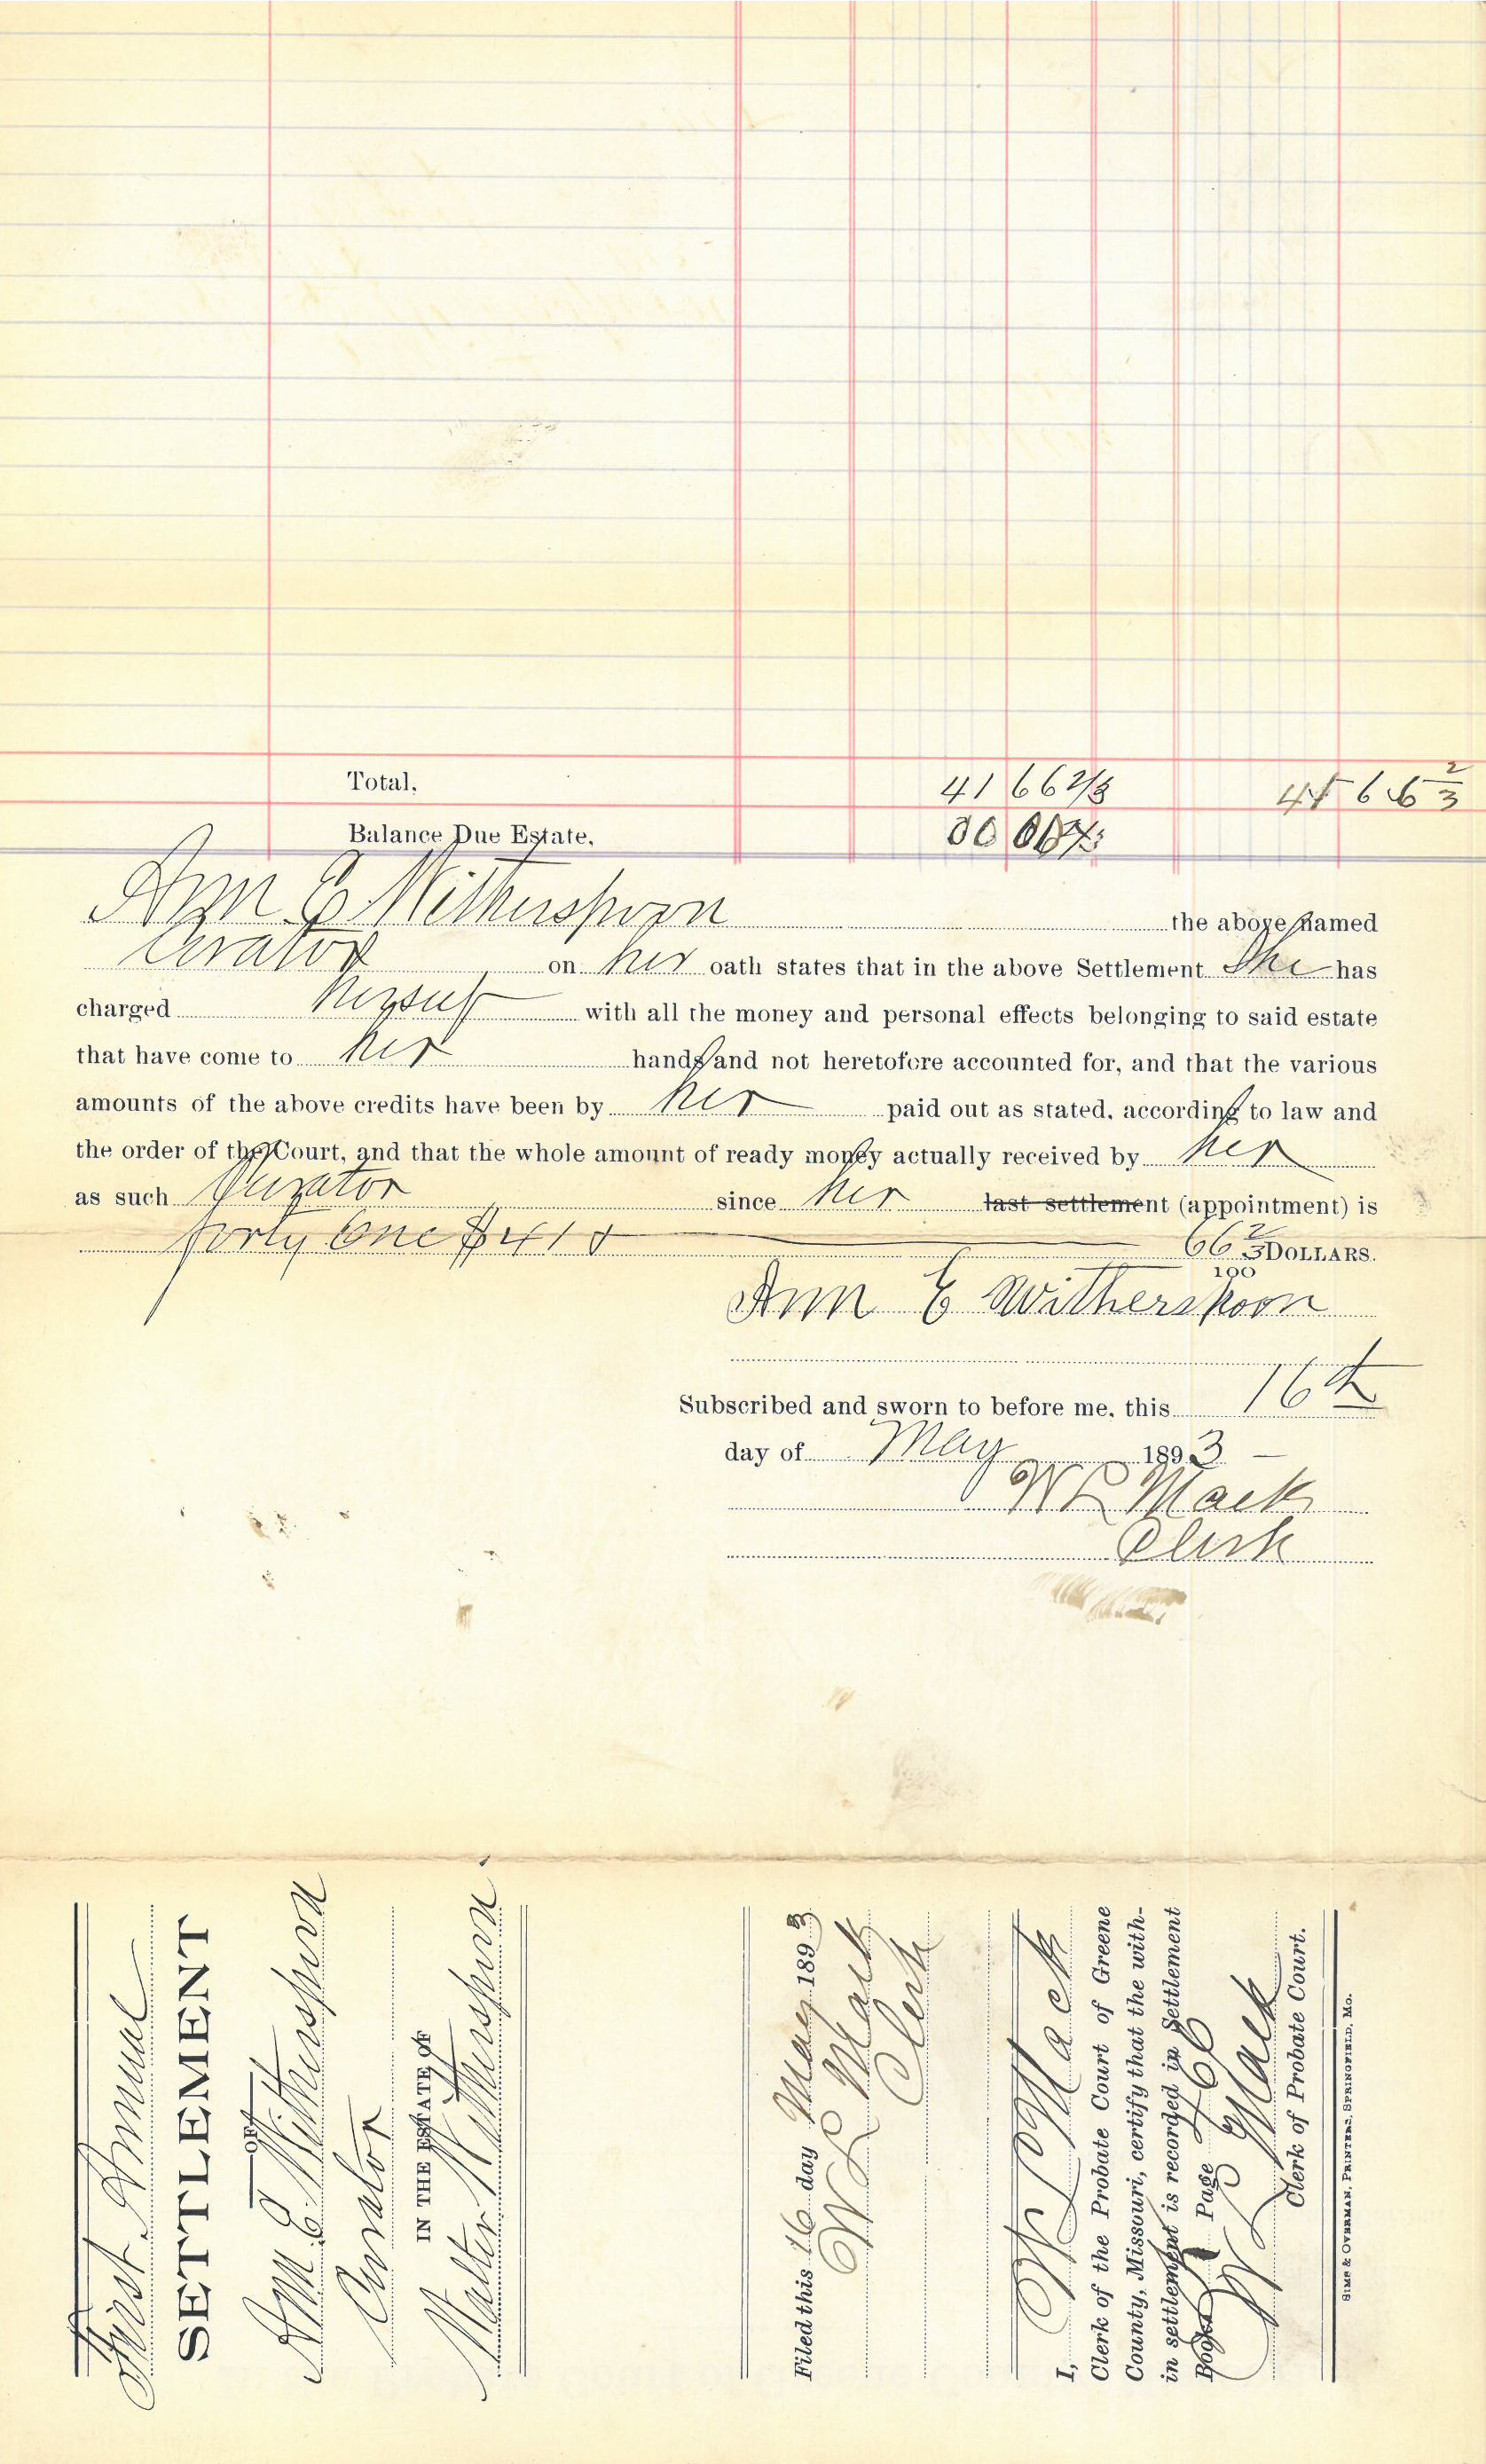 Total. 41 66 2/3 41 66 2/3
Balance Due Estate. 00 00
Ann E Witherspoon the above named
Curator on her oath states that in the above Settlement She has
charged herself with all the money and personal effects belonging to said estate
that have come to her hands and not heretofore accounted for, and that the various
amounts of the above credits have been by her paid out as stated, according to law and
the order of the Court, and that the whole amount of ready money actually received by her
as such Curator since her last settlement (appointment) is
forty One & 66 2/3 DOLLARS.
100
Ann E Witherspoon
Subscribed and sworn to before me, this 16th
day of May 1893
W L Mack
Clerk
First Annual
SETTLEMENT
OF
Ann E. Witherspoon
Curator
IN THE ESTATE OF
Walter Witherspoon
Filed this 16 day May 1893
W L Mack
Clerk
I, W L Mack
Clerk of the Probate Court of Greene
County, Missouri, certify that the with-
in settlement is recorded in Settlement
Book Page
W L Mack
Clerk of Probate Court.
SIMS & OVERMAN, PRINTERS, SPRINGFIELD, MO.